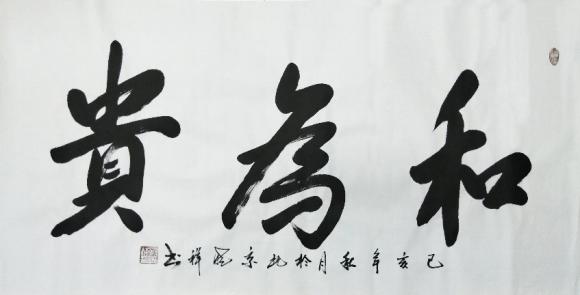 和為貴
己亥年秋月於北京祥书